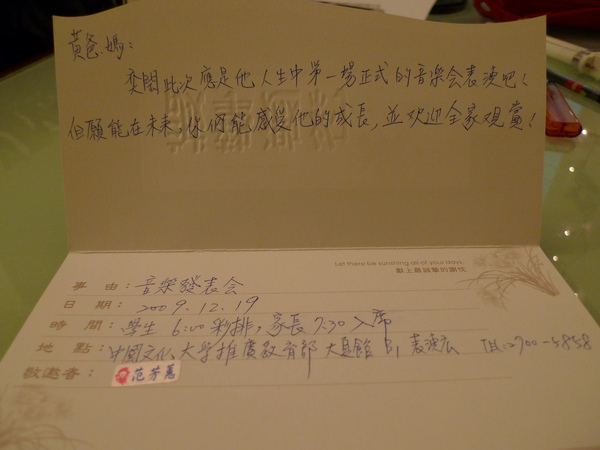 黃爸.媽:
奕閎此次應是他人生中第一場正式的音樂会表演吧!
但願能在未來,你們能感受他的成長,並歡迎全家观賞!
Let there be sunshing all of your days.
獻上最誠摯的謝忱
事由:音樂發表会
日期:2009.12.19
時間:學生 6:00 彩排,家長 7:30 入席
地點:中國文化大学推廣教育部 大夏館 B1 表演厅 TEL:2700-5858
敬邀者:范芳蕙